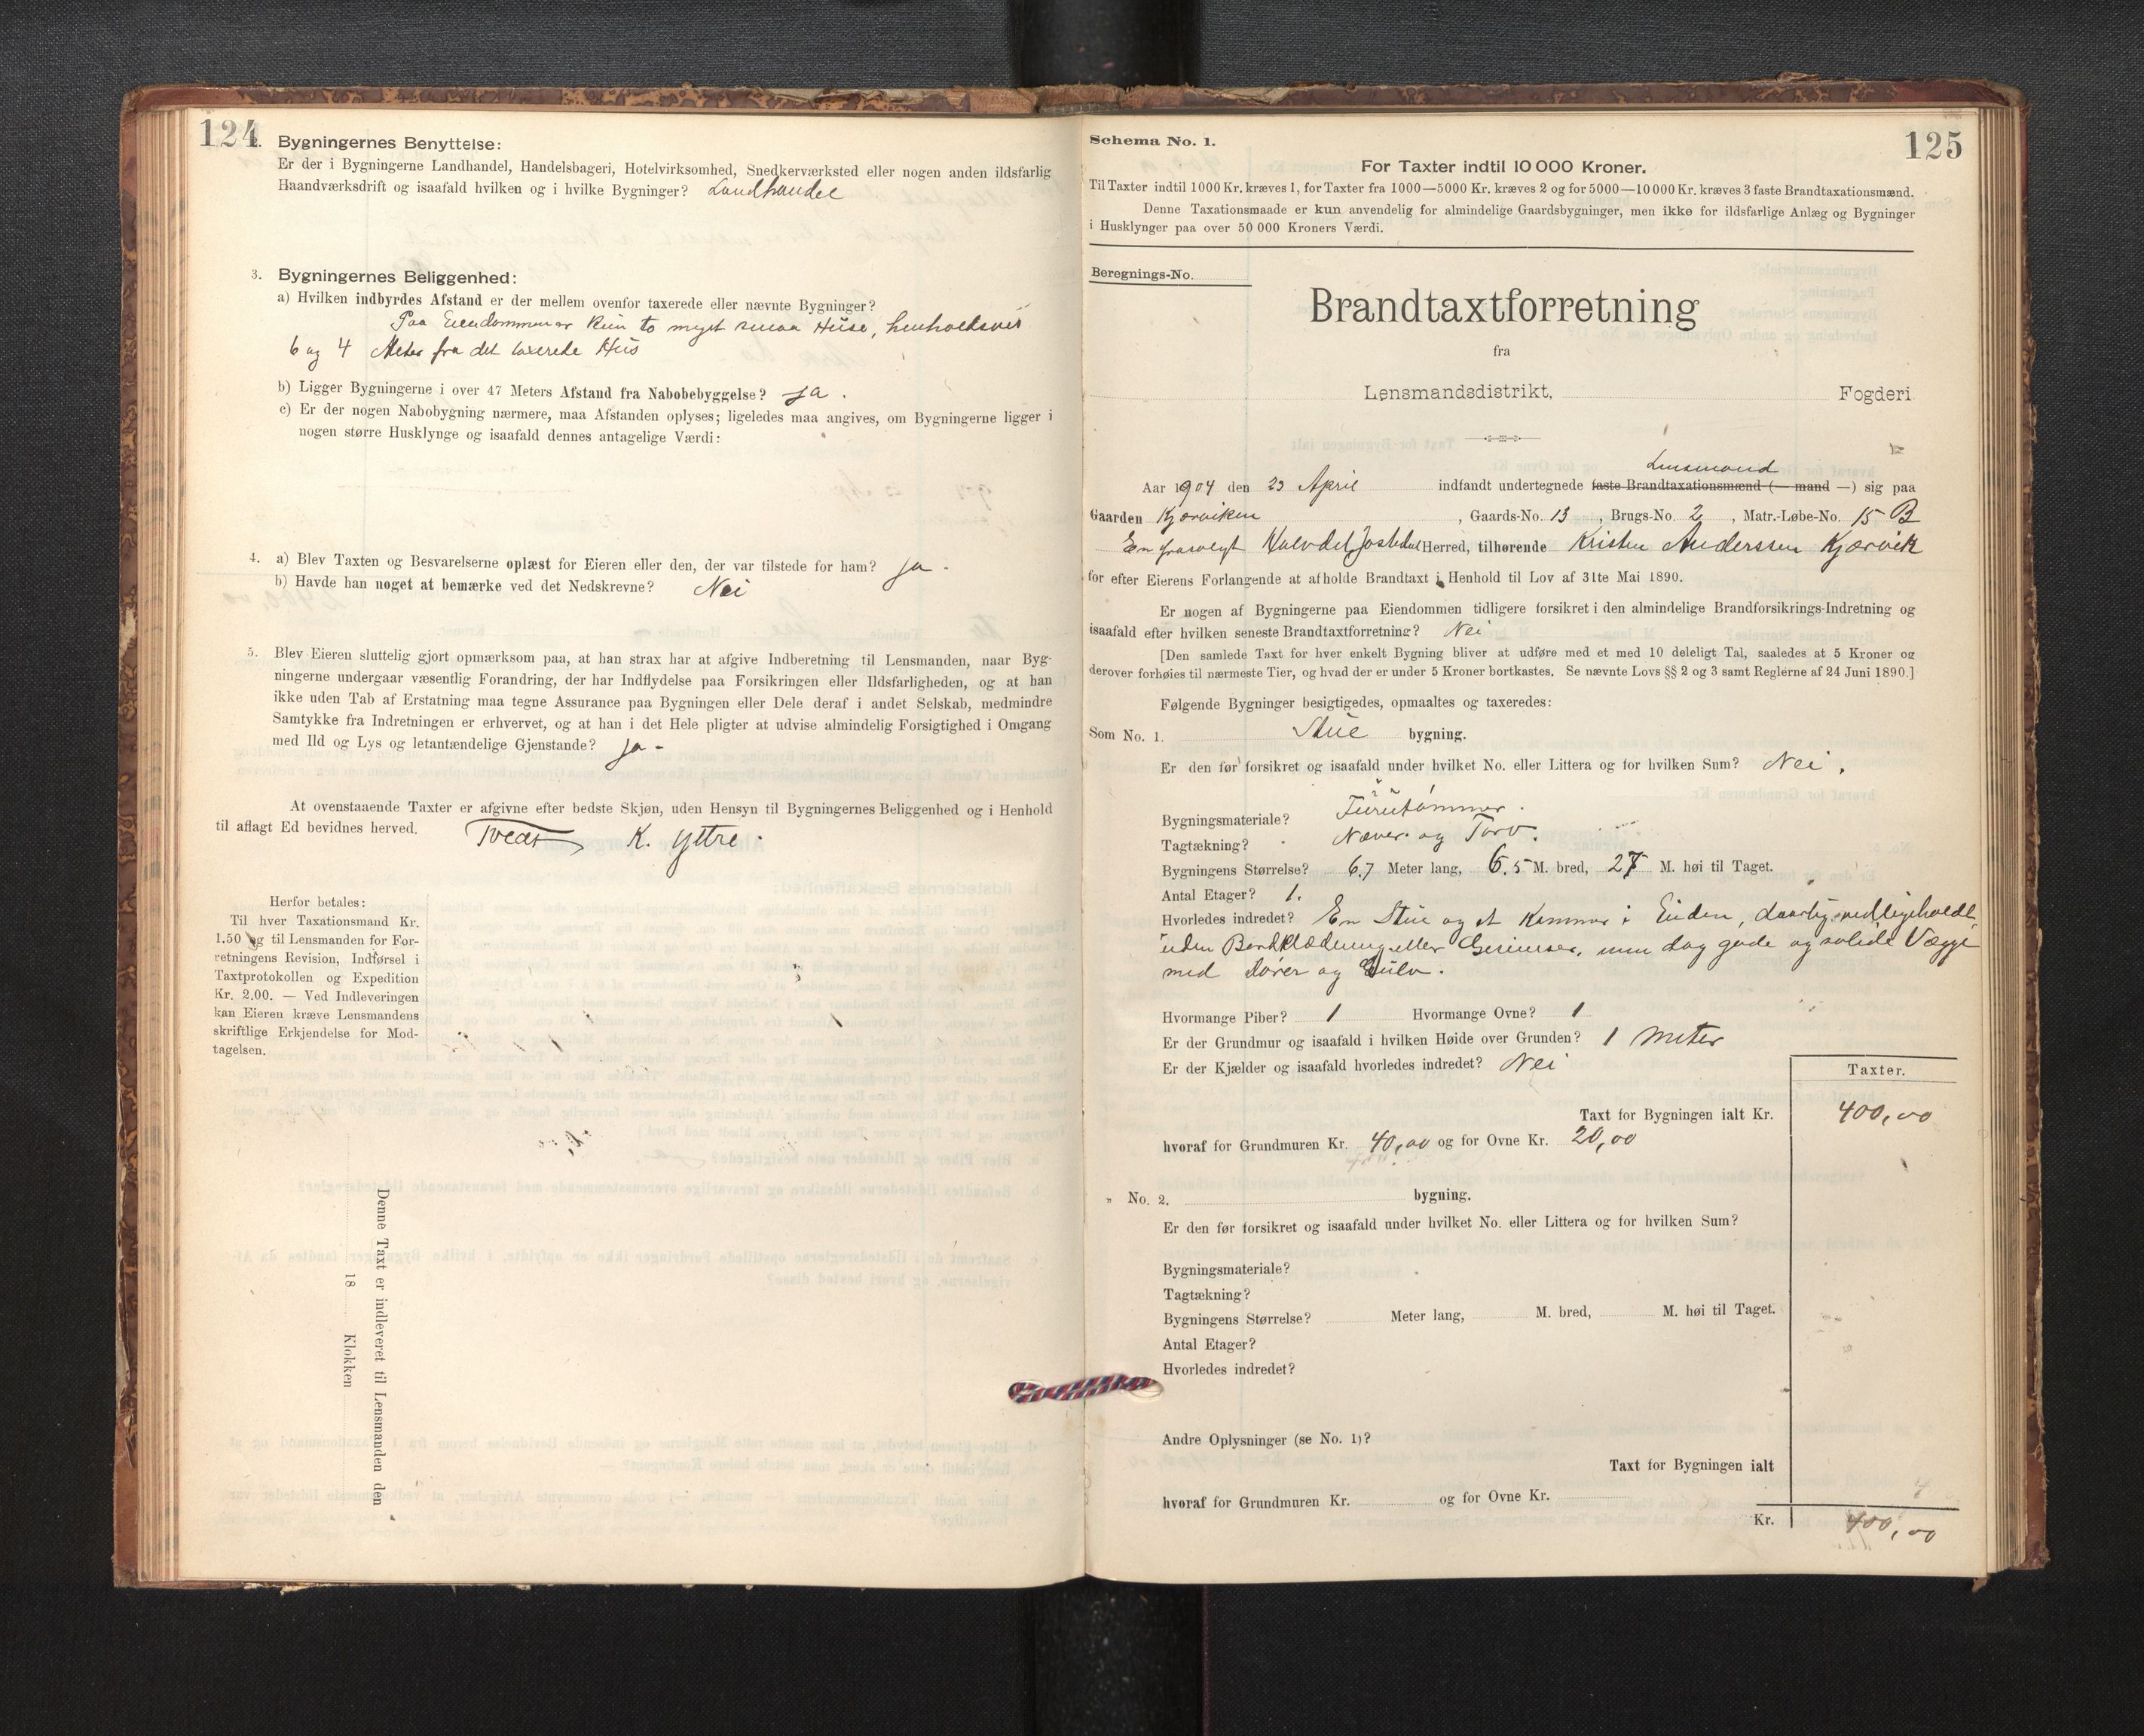 124
2. Bygningernes Benyttelse:
Er der i Bygningerne Landhandel, Handelsbageri, Hotelvirksomhed, Snedkerværksted eller nogen anden ildsfarlig
Haandværksdrift og isaafald hvilken og i hvilke Bygninger? Landhandel
3. Bygningernes Beliggenhed:
a) Hvilken indbyrdes Afstand er der mellem ovenfor taxerede eller nævnte Bygninger?
Paa Eiendommen er kun to myget smaa Huse, henholdsvis
6 og 4 Meter fra det taxerede Hus
b) Ligger Bygningerne i over 47 Meters Afstand fra Nabobebyggelse? ja.
c) Er der nogen Nabobygning nærmere, maa Afstanden oplyses; ligeledes maa angives, om Bygningerne ligger i
nogen større Husklynge og isaafald dennes antagelige Værdi:
4. a) Blev Taxten og Besvarelserne oplæst for Eieren eller den, der var tilstede for ham? ja -
b) Havde han noget at bemærke ved det Nedskrevne? Nei
5. Blev Eieren sluttelig gjort opmærksom paa, at han strax har at afgive Indberetning til Lensmanden, naar Byg-
ningerne undergaar væsentlig Forandring, der har Indflydelse paa Forsikringen eller Ildsfarligheden, og at han
ikke uden Tab af Erstatning maa tegne Assurance paa Bygningen eller Dele deraf i andet Selskab, medmindre
Samtykke fra Indretningen er erhvervet, og at han i det Hele pligter at udvise almindelig Forsigtighed i Omgang
med Ild og Lys og letantændelige Gjenstande? ja -
At ovenstaaende Taxter er afgivne efter bedste Skjøn, uden Hensyn til Bygningernes Beliggenhed og i Henhold
til aflagt Ed bevidnes herved. Tvedt K. Yttre.
Herfor betales:
Til hver Taxationsmand Kr.
1.50 og til Lensmanden for For-
retningens Revision, Indførsel i
Taxtprotokollen og Expedition
Kr. 2.00. — Ved Indleveringen
kan Eieren kræve Lensmandens
skriftlige Erkjendelse for Mod-
tagelsen.
Denne Taxt er indleveret til Lensmanden den
18 Klokken
125
Schema No. 1.
For Taxter indtil 10 000 Kroner.
Til Taxter indtil 1000 Kr. kræves 1, for Taxter fra 1000—5000 Kr. kræves 2 og for 5000—10 000 Kr. kræves 3 faste Brandtaxationsmænd.
Denne Taxationsmaade er kun anvendelig for almindelige Gaardsbygninger, men ikke for ildsfarlige Anlæg og Bygninger
i Husklynger paa over 50 000 Kroners Værdi.
Beregnings-No.
Brandtaxtforretning
fra
Lensmandsdistrikt, Fogderi
Lensmand
Aar 1904 den 23 April indfandt undertegnede faste Brandtaxationsmænd (— mand —) sig paa
Gaarden Kjærviken, Gaards-No. 13, Brugs-No. 2, Matr.-Løbe-No. 15 B
Jostedal Herred, tilhørende Kristen Anderssen Kjærvik
for efter Eierens Forlangende at afholde Brandtaxt i Henhold til Lov af 31te Mai 1890.
Er nogen af Bygningerne paa Eiendommen tidligere forsikret i den almindelige Brandforsikrings-Indretning og
isaafald efter hvilken seneste Brandtaxtforretning? Nei
[Den samlede Taxt for hver enkelt Bygning bliver at udføre med et med 10 deleligt Tal, saaledes at 5 Kroner og
derover forhøies til nærmeste Tier, og hvad der er under 5 Kroner bortkastes. Se nævnte Lovs §§ 2 og 3 samt Reglerne af 24 Juni 1890.]
Følgende Bygninger besigtigedes, opmaaltes og taxeredes:
Som No. 1. Stue bygning.
Er den før forsikret og isaafald under hvilket No. eller Littera og for hvilken Sum? Nei.
Bygningsmateriale? Furutømmer.
Tagtækning? Næver og Torv.
Bygningens Størrelse? 6,7 Meter lang, 6.5 M. bred, 27 M. høi til Taget.
Antal Etager? 1.
Hvorledes indredet? En Stue og et Kammer i Enden, daarlig vedligeholdt
uden Bordklædning eller Gerimser, men dog gode og solide Vægge
med Dører og Gulv.
Hvormange Piber? 1 Hvormange Ovne? 1
Er der Grundmur og isaafald i hvilken Høide over Grunden? 1 Meter
Er der Kjælder og isaafald hvorledes indredet? Nei
Taxter.
Taxt for Bygningen ialt Kr. 400,00
hvoraf for Grundmuren Kr. 40,00 og for Ovne Kr. 20,00
„ No. 2. bygning.
Er den før forsikret og isaafald under hvilket No. eller Littera og for hvilken Sum?
Bygningsmateriale?
Tagtækning?
Bygningens Størrelse? Meter lang, M. bred, M. høi til Taget.
Antal Etager?
Hvorledes indredet?
Andre Oplysninger (se No. 1)?
Taxt for Bygningen ialt
hvoraf for Grundmuren Kr. og for Ovne Kr.
Kr. 400,00